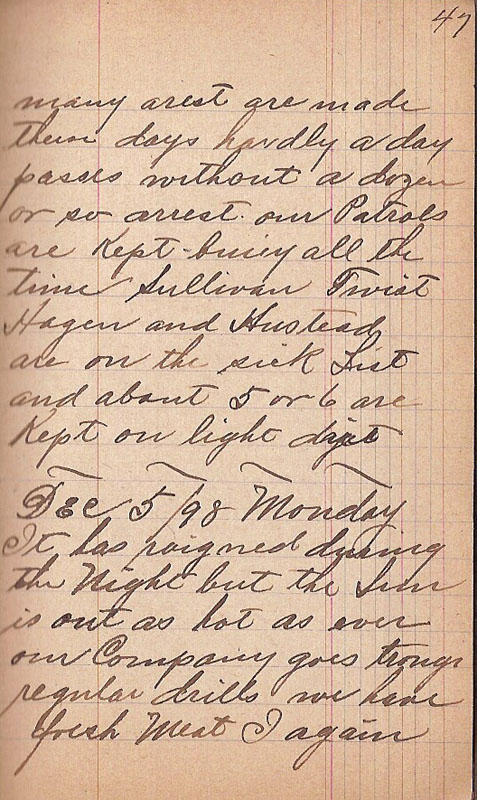 47
many arest are made
these days hardly a day
passes without a dozen
or so arrest. our Patrols
are Kept busey all the
time Sullivan Twist
Hagen and Hustead
are on the sick List
and about 5 or 6 are
Kept on light
Dec 5/98 Monday
It has raigned during
the Night but the Sun
is out as hot as ever
our Company goes trough
regular drills we have
fresh Meat I again